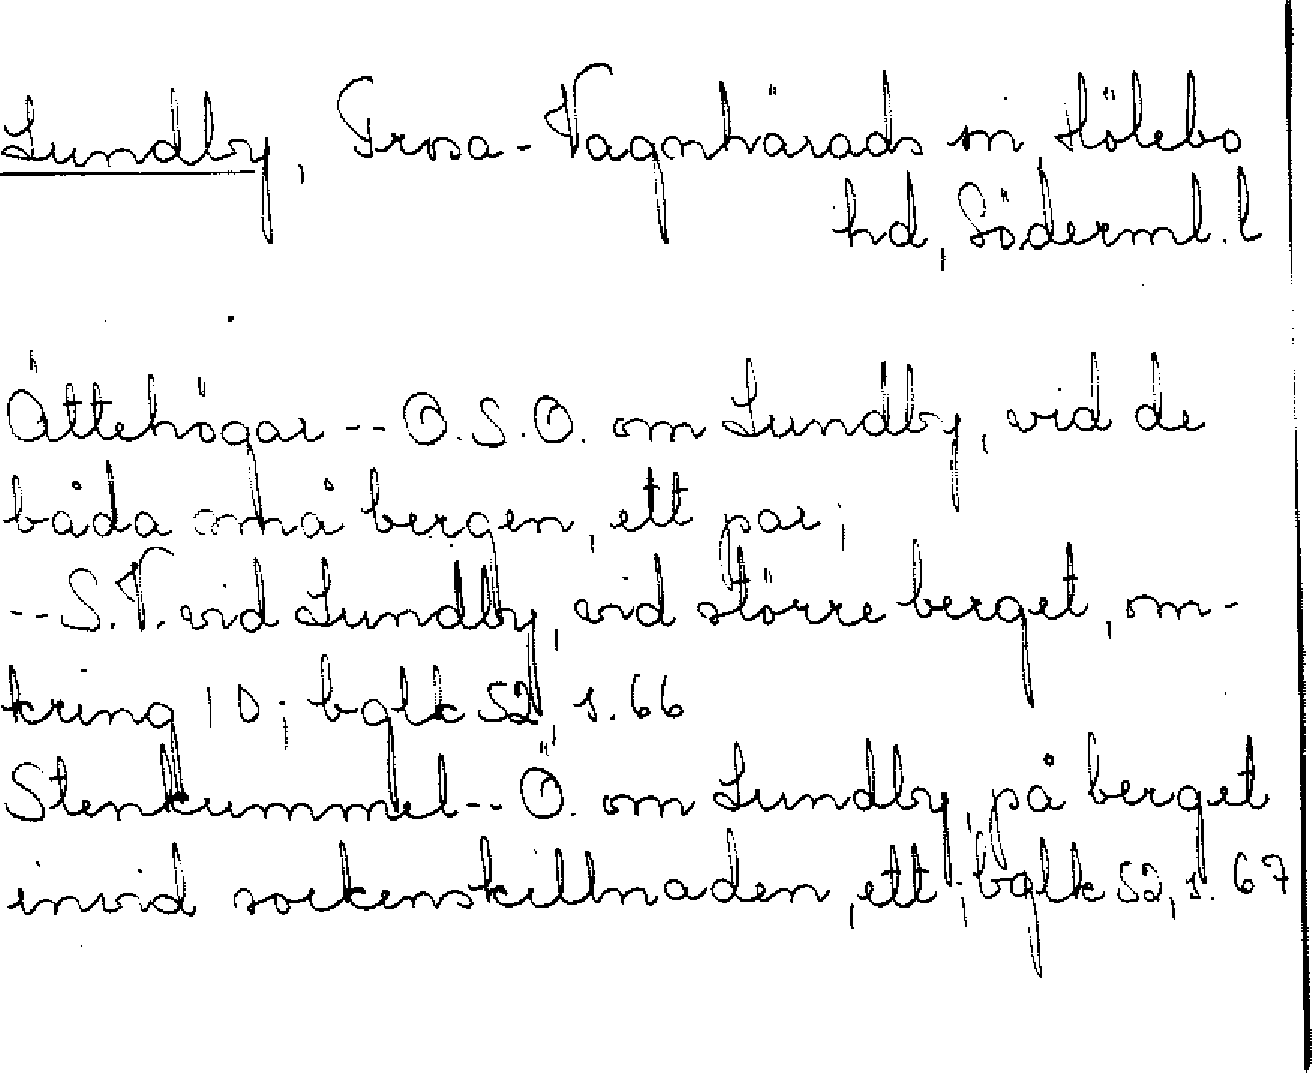 Lundby, Trosa-Vagnhärads sn, Hölebo
hd, Söderml. l
Ättehögar -- O.S.O. om Lundby, vid de
båda små bergen, ett par;
-- S.V. vid Lundby, vid större berget, om-
kring 10; bglk 52, s. 66
Stenkummel -- Ö. om Lundby, på berget
invid sockenskillnaden, ett; bglk 52, s. 67